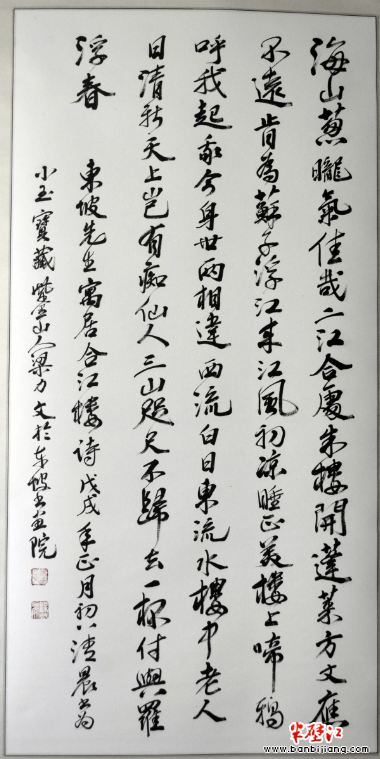 海山蔥曨氣佳哉二江合處朱樓開蓬萊方丈應
不遠肯為蘇子浮江來江風初凉睡正美樓上啼鴉
呼我起我今身世兩相違西流白日東流水樓中老人
日清新天上豈有痴仙人三山咫尺不歸去一杯付與羅
浮春
東坡先生寓居合江樓詩戊戌年正月初八清晨書為
小玉寶藏 山人梁力文於东坡书画院
半壁江
www.banbijiang.com